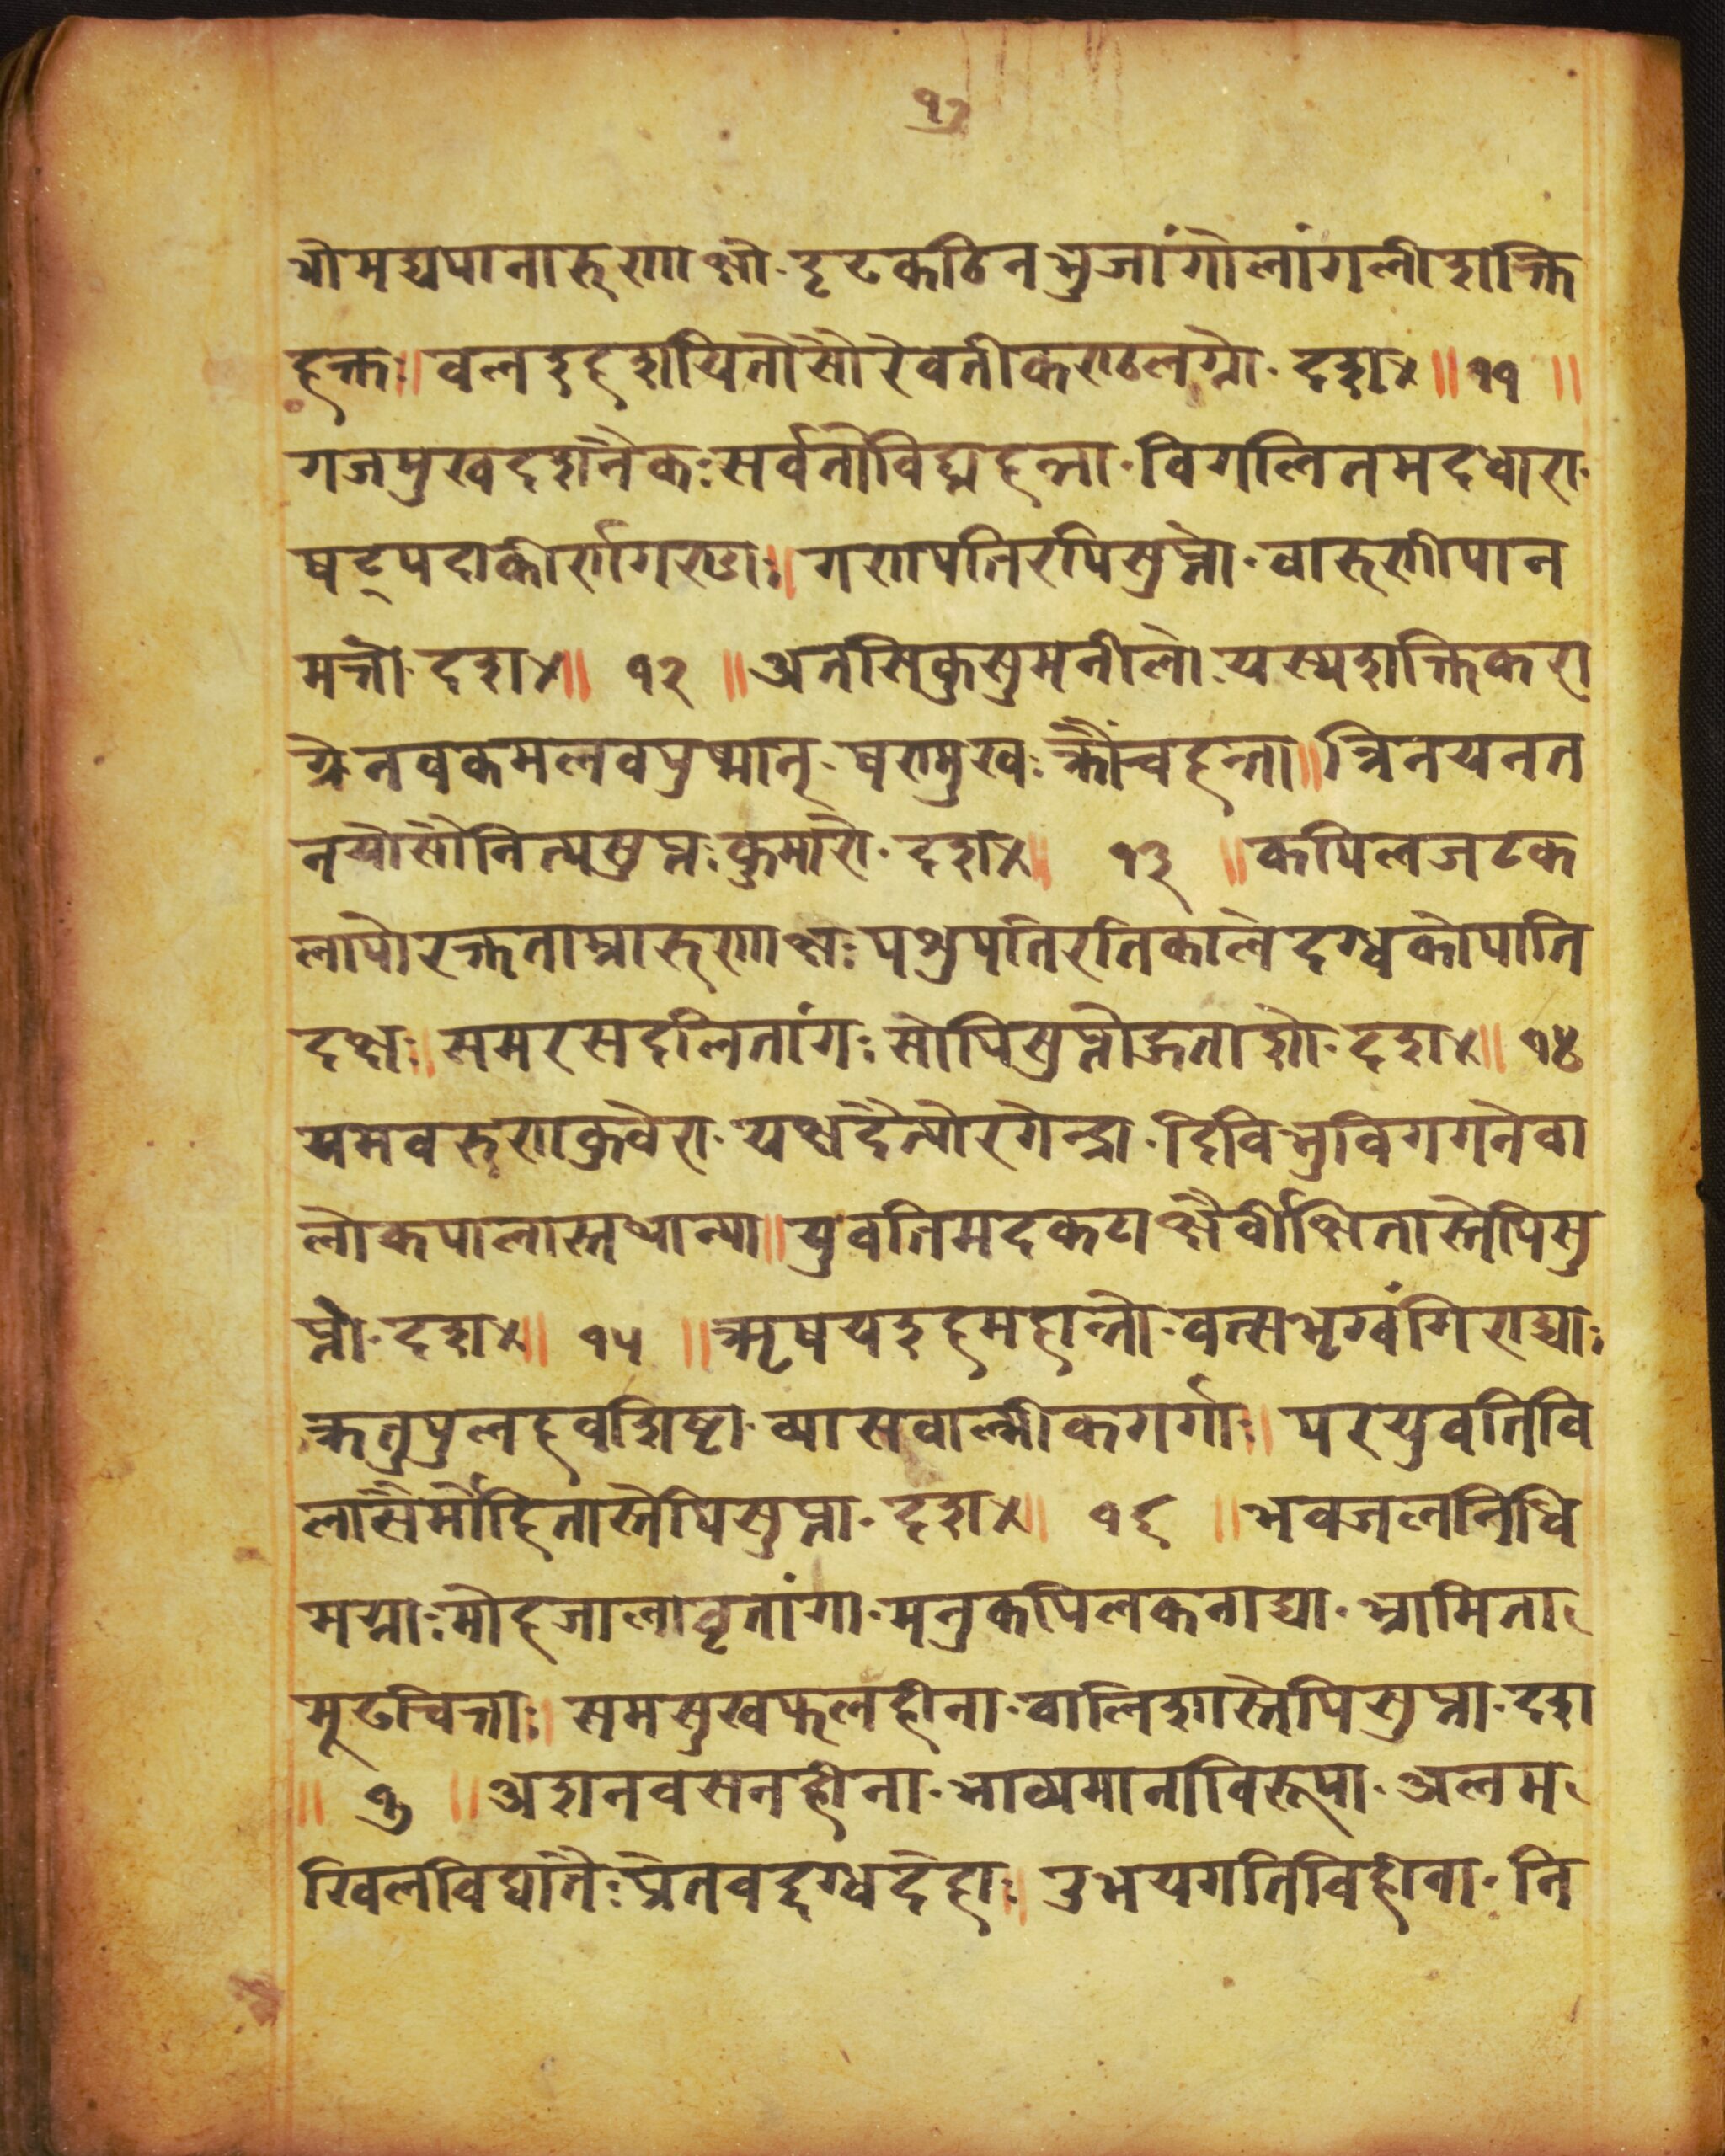 १७
भीमद्यपानारुणाक्षो·दृटकठिनभुजांगोलांगलीशक्ति
हक्त॥वलइहशयितोसौरेवतीकण्ठलग्नो·दश४॥११॥
गजमुखदशनैकःसर्वतोविघ्नहन्ता·विगलितमदधारा·
षट्पदाकीर्णगण्डः॥गणपतिरपिसुप्तो·वारुणीपान
मत्तो·दश४॥१२॥अतसिकुसुमनीलो·यस्यशक्तिकरा
ग्रे·नवकमलवपुष्मान्·षण्मुखःक्रौंचहन्ता॥त्रिनयनत
नयोसौनित्यसुप्तःकुमारो·दश४॥१३॥कपिलजटक
लापोरक्तताम्रारुणाक्षःपशुपतिरतिकालेदग्धकोपाति
दक्षः॥समरसदलितांगःसोपिसुप्तोहृताशो·दश४॥१४
यमवरुणकुवेरा·यक्षदैत्योरगेन्द्रा·दिविभुविगगनेवा
लोकपालास्तथान्या॥युवतिमदकटाक्षैर्वीक्षितास्तेपिसु
प्तो·दश४॥१५॥ऋषयइहमहान्तो·वत्सभृग्वंगिराद्याः
क्रतुपुलहवशिष्टा·व्यासवाल्मीकगर्गाः॥परयुवतिवि
लासैर्मोहितास्तेपिसुप्ता·दश४॥१६॥भवजलनिधि
मग्नाःमोहजालावृतांगा·मनुकपिलकनाद्या·भ्रामिता
मूढचित्ताः॥समसुखफलहीना·वालिशास्तेपिसुप्ता·दश
॥१७॥अशनवसनहीना·भाव्यमानाविरूपा·अलम
खिलविघातैःप्रेतवद्दग्धदेहाः॥उभयगतिविहीना·नि